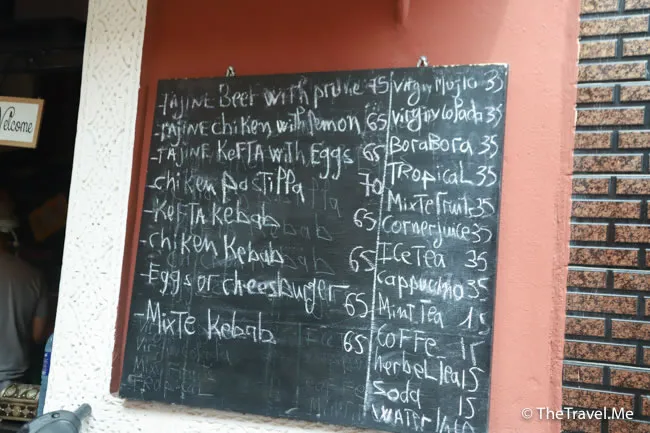 Welcome
-TAJINE Beef with prune 75
-TAJINE chiken with lemon 65
-TAJINE KeFTA with Eggs 65
-chiken pastilla 70
-KeFTA Kebab 65
-chiken Kebab 65
-Eggs or cheesburger 65
-MixTe Kebab 65
Virgin Mujito 35
Virgin Colada 35
BoraBora 35
TRopicaL 35
MixTe Fruits 35
Corner juice 35
ICe Tea 35
Cappuccino 35
Mint Tea 15
CoFFe 15
HerbeL Tea 15
Soda 15
WATER
© TheTravel.Me